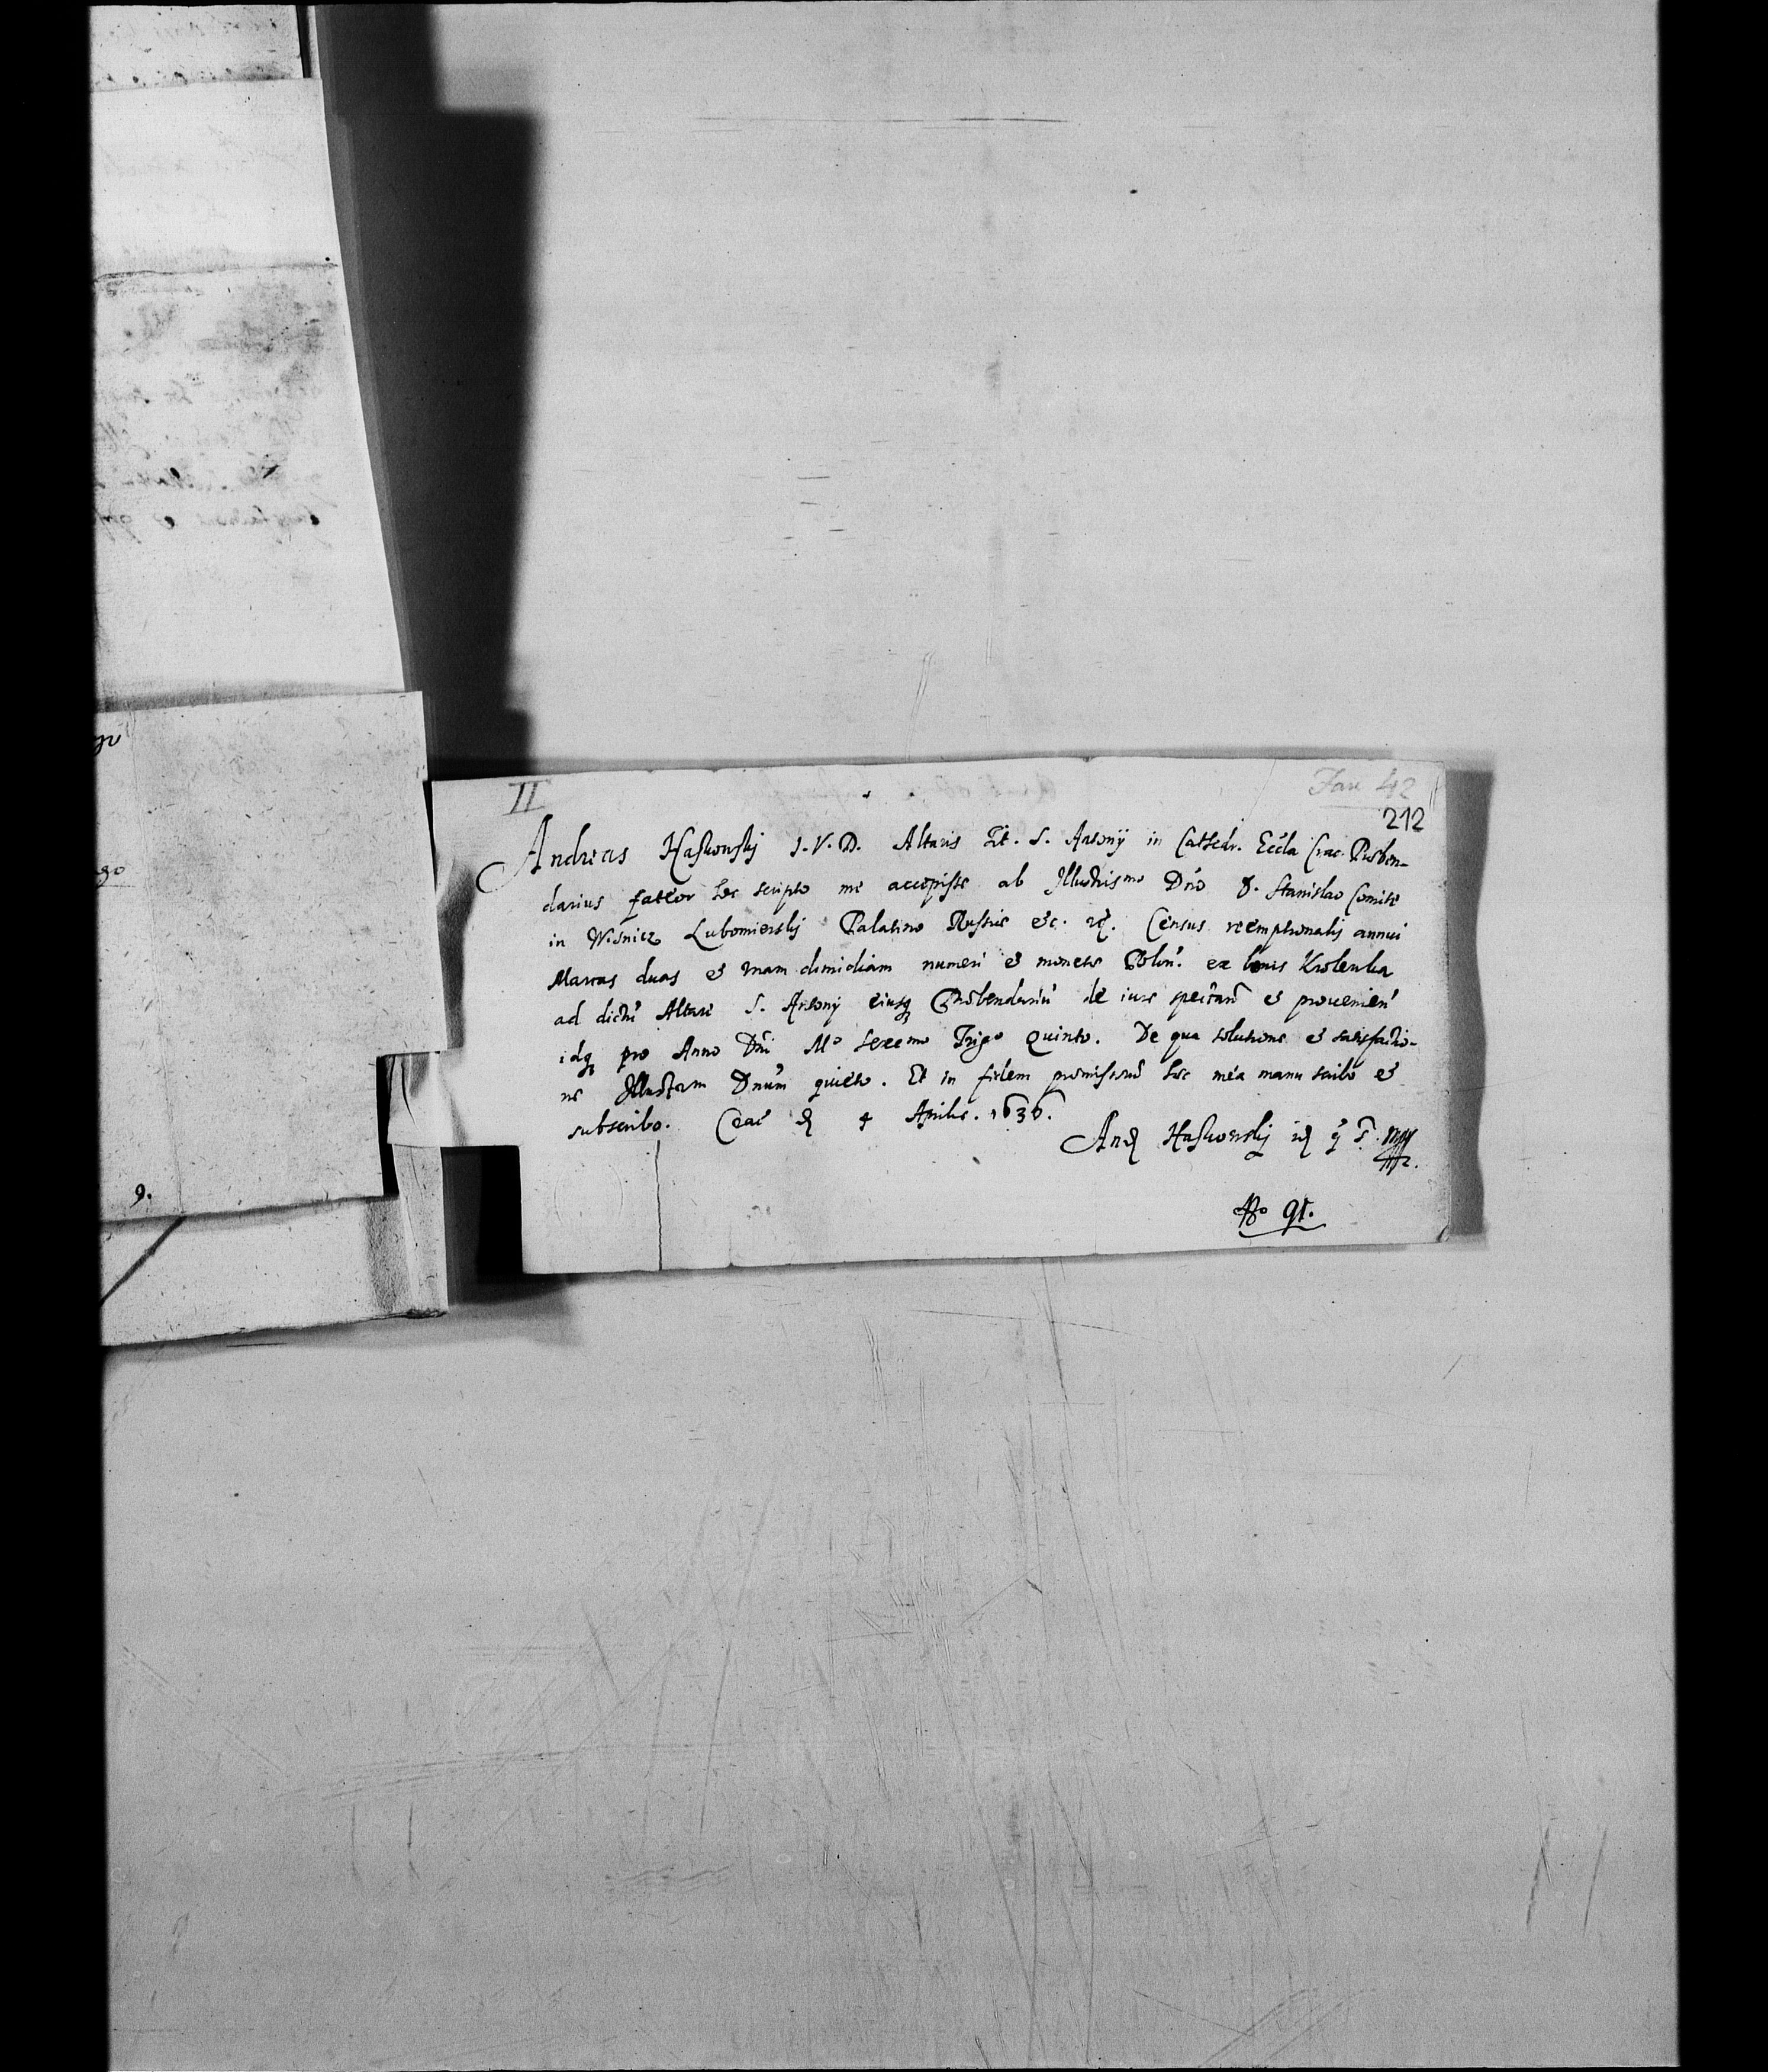 II
Fasc 42
212
Andreas Haskowskj I.V.D. Altaris Tit. S. Antonij in Cathedr. Eccla Crac. Præben-
darius fateor hoc scripto me accepisse ab Illustrismo Dño D. Stanislao Comite
in Wisnicz Lubomierskj Palatino Russiæ etc. etc. Census reemptionalis annui
Marcas duas et unam dimidiam numeri et monetæ Polon. ex bonis Krolewka
ad dictū Altare S. Antonij eiusq Præbendariū de iure spectan et prouenien
idq pro Anno Dñi Mo sexcmo Trigo Quinto. De qua solutione et satisfactio-
ne Illustrem Dnum quieto. Et in fidem præmissorū hæc mea manu scribo et
subscribo. Crac d 4 Aprilis. 1636.
And Haskowskj mpp.
No 91.
go
9.